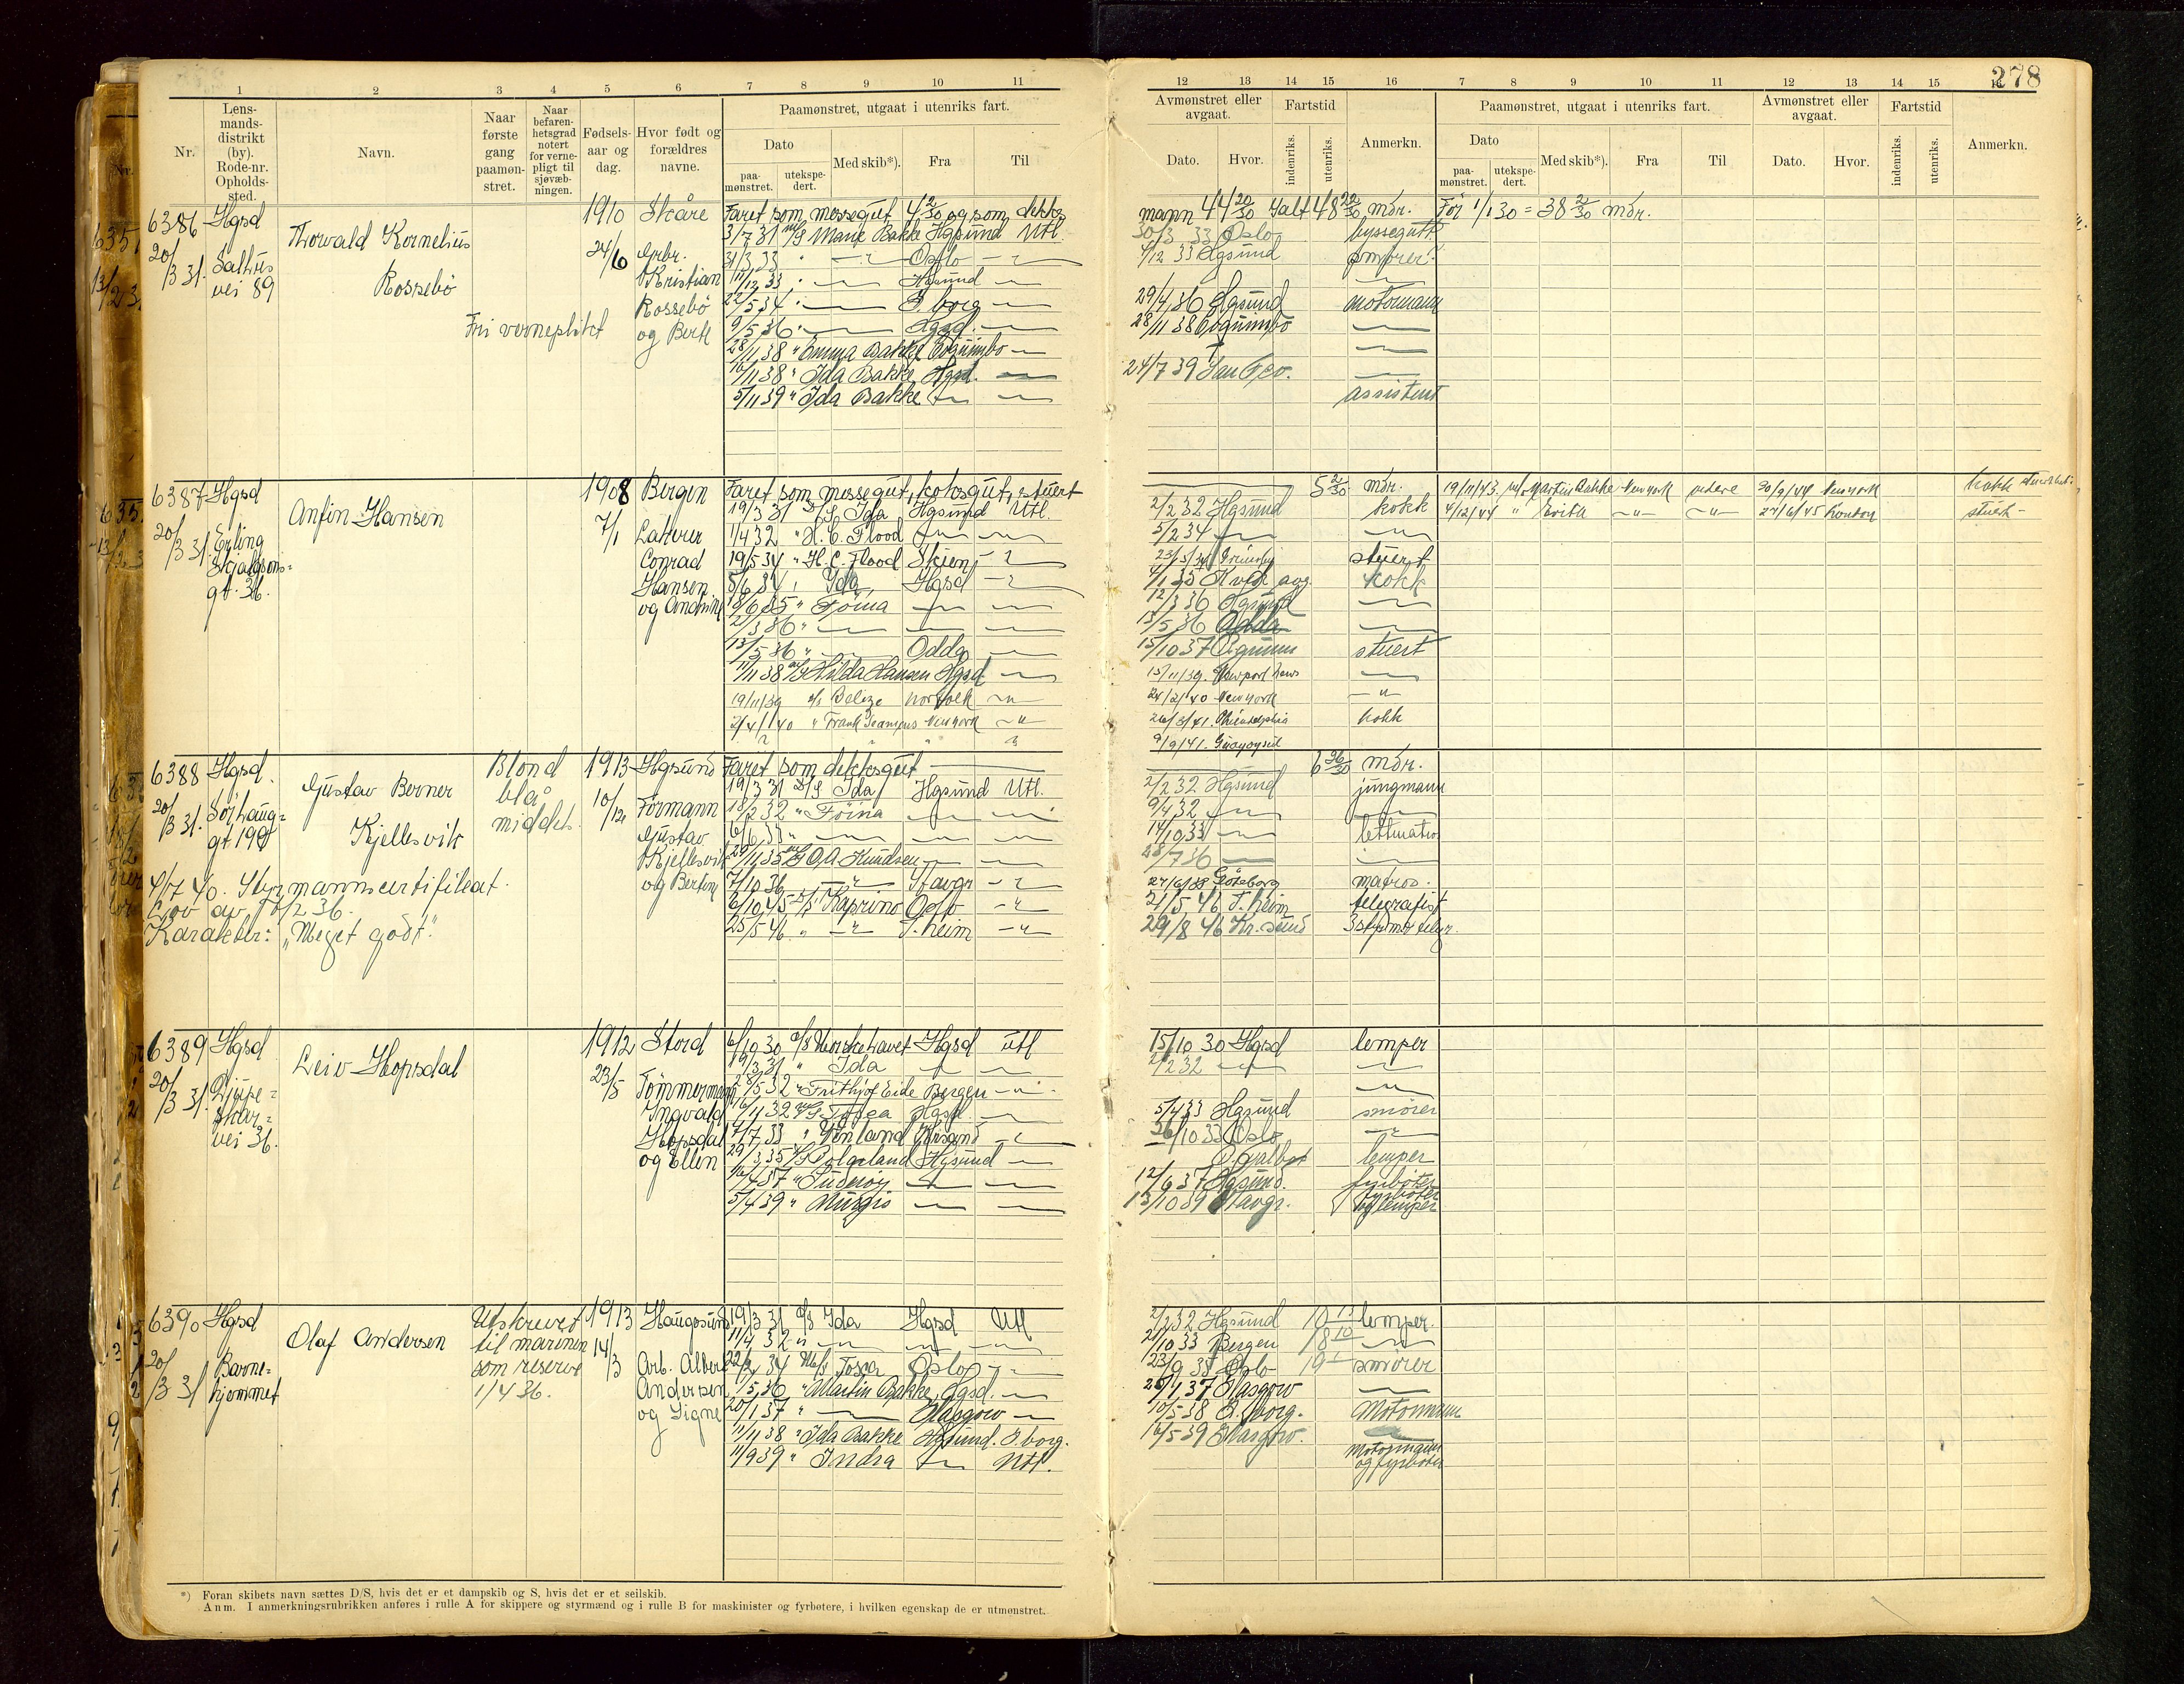 278
1 2 3 4 5 6 7 8 9 10 11
12 13 14 15 16 7 8 9 10 11 12 13 14 15
Nr.
Lens-
mands-
distrikt
(by).
Rode-nr.
Opholds-
sted.
Navn.
Naar
første
gang
paamøn-
stret.
Naar
befaren-
hetsgrad
notert
for verne-
pligt til
sjøvæb-
ningen.
Fødsels-
aar og
dag.
Hvor født og
forældres
navne.
Paamønstret, utgaat i utenriks fart.
Dato
paa-
mønstret.
utekspe-
dert.
Med skib*).
Fra
Til
Avmønstret eller
avgaat.
Dato.
Hvor.
Fartstid
indenriks.
utenriks.
Anmerkn.
Paamønstret, utgaat i utenriks fart.
Dato
paa-
mønstret.
utekspe-
dert.
Med skib*).
Fra
Til
Avmønstret eller
avgaat.
Dato.
Hvor.
Fartstid
indenriks.
utenriks.
Anmerkn.
6386 Hgsd
20/3 31. Salhus
vei 89
Thorvald Kornelius
Rossebö
Fri verneplikt
1910
24/6
Skåre
Arbr.
Kristian
Rossebö
og Berte
Faret som messegut 4 2/30 og som dekks
mann 44 20/30 Ialt 48 22/30 mdr. Før 1/1 30 = 38 2/30 mdr.
3/7 31 m/S Marie Bakke Hgsund Utl. 30/3 33 Oslo byssegutt
31/3 33 " Oslo 4/12 33 Hgsund smører
11/12 33 " Hgsund
22/5 34 " G.borg 29/4 36 Hgsund motormann
9/5 36 " Hgsd. 28/11 38
28/11 38 " Emma Bakke
16/11 38 " Ida Bakke Hgsd. 24/7 39
5/11 39 " Ida Bakke assistent
6387 Hgsd
20/3 31. Erling
Skjalgsons-
gt. 36.
Anfin Hansen
1908
7/1
Bergen
Conrad
Hansen
og Andrine
Faret som messegut, koksgut, stuert 5 2/30 mdr.
19/3 31 D/S Ida Hgsund Utl. 2/2 32 Hgsund kokk
1/4 32 " H. C. Flood 5/2 34
19/5 34 " H. C. Flood Skien stuert
5/6 34 " Ida Hgsd 4/1 35 kokk
19/6 35 " Föina 12/3 36 Hgsund
12/3 36 " 13/5 36 Odda
13/5 36 " Odda 15/10 37 stuert
11/11 38 m/S Hilda Hansen Hgsd 15/11/39. Newport News
19/11/39 s/s Belize Norfolk 24/2/40 New York
2/4/40 " Frank Seamans New York 26/3/41. Philadelphia kokk
9/9/41. Guayaquil
19/11/43. m/s Martin Bakke New York videre 30/9/44 New York kokk
4/12/44 " 27/6/45 London stuert
6388 Hgsd.
20/3 31. Sörhaug-
gt 190
Gustav Berner
Kjellesvik
Blond
blå
middels
1913
10/12
Hgsund
Förmann
Gustav
Kjellesvik
og Bertine
4/7 40. Styrmannscertifikat.
Lov av 7/2 36.
Karakter: "Meget godt."
Faret som dekksgut 6 26/30 mdr.
19/3 31 D/S Ida Hgsund Utl. 2/2 32 Hgsund jungmann
18/2 32 " Föina 9/4 32
6/6 33 " 14/10 33 lettmatros
29/11 35 m/S O. A. Knudsen 28/7 36
7/10 36 " Stavgr 27/6/38 Göteborg matros.
6/10 45 D/S Kaprino Oslo 21/5 46 T.heim telegrafist
25/5 46. " T.heim 29/8 46 Kr. sund 3 styrm. telgr.
6389 Hgsd
20/3 31. Djupe-
skar-
vei 36.
Leiv Hopsdal
1912
23/5
Stord
Tömmermann
Ingvald
Hopsdal
og Ellen
6/10 30 s/s Norskehavet Hgsd utl 15/10 30 Hgsd lemper
19/3 31 " Ida 2/2 32
2/5 32 " Frithjof Eide Bergen
16/11 32 m/S Tosca Hgsd. 5/4 33 Hgsund smører
17/7 33 " Vinland Krsand 26/10 33 Oslo
29/3 35 Hgsund lemper
16/4 37 " Suderöy 12/6 37 Hgsund. fyrböter
5/4 39 " Murgis 13/10 39 Stavgr. fyrböter
og lemper
6390 Hgsd
20/3 31 Barne-
hjemmet
Olaf Andersen
Utskrevet
til marinen
som reserve
1/4 36.
1913
14/3
Haugesund
Arb. Albert
Andersen
og Signe
19/3 31 s/s Ida Hgsd Utl 2/2 32 Hgsund 10 13 lemper.
11/4 32 " 21/10 33 Bergen 18 10
22/2 34 M/s Tosca Oslo 23/9 35 Oslo 19 1 smører
1/5 36 " Martin Bakke Hgsd. 20/1 37 Glasgow
20/1 37 " Glasgow 10/5 38 G.borg. Motormann
11/11 38 " Ida Bakke Hgsund. G.borg. 16/5 39 Glasgow.
11/9 39 " Indra Utl. Motormann
og fyrböter
*) Foran skibets navn sættes D/S, hvis det er et dampskib og S, hvis det er et seilskib.
Anm. I anmerkningsrubrikken anføres i rulle A for skippere og styrmænd og i rulle B for maskinister og fyrbøtere, i hvilken egenskap de er utmønstret.